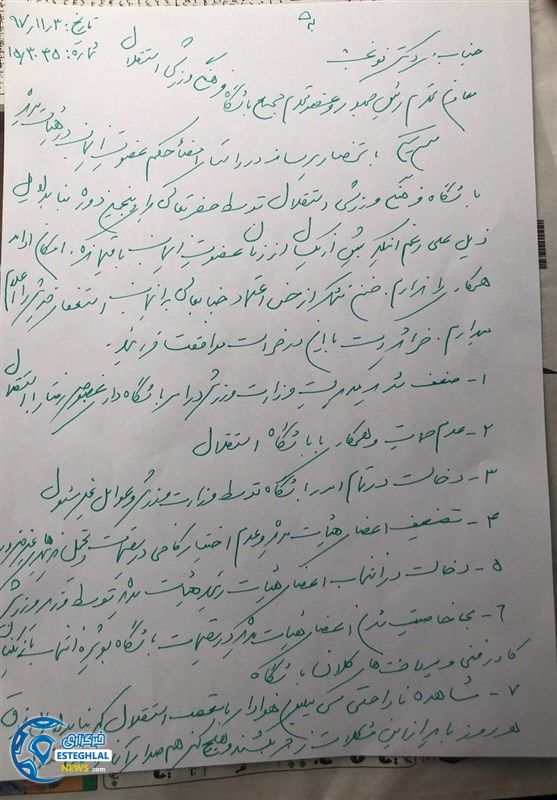 تاریخ: ۹۷/۱۱/۳۰
شماره: ۱۵/۳۰۴۵
جناب دکتر نوبخت
معاون محترم رئیس جمهور و عضو محترم مجمع باشگاه فرهنگی ورزشی استقلال
با استحضار می‌رساند در راستای امضاء حکم عضویت اینجانب در هیئت مدیره
باشگاه فرهنگی ورزشی استقلال توسط حضرتعالی برای پنجمین دوره بنا به دلایل
ذیل علی رغم اینکه بیش از یکسال از زمان عضویت اینجانب باقیمانده، امکان ادامه
همکاری را ندارم. ضمن تشکر از حسن اعتماد جنابعالی به اینجانب استعفای خویش را اعلام
میدارم. خواهشمند است با این درخواست موافقت فرمائید.
۱- ضعف شدید مدیریت وزارت ورزش در امر باشگاه داری بخصوص در رابطه با استقلال
۲- عدم حمایت و همکاری با باشگاه استقلال
۳- دخالت در تمام امور باشگاه توسط وزارت ورزش و عوامل غیر مسئول
۴- تضعیف اعضای هیأت مدیره و عدم اختیار کافی در تصمیمات و تحمیل
۵- دخالت در انتخاب اعضای هیأت رئیسه هیئت مدیره توسط وزیر ورزش
۶- بی خاصیت شدن اعضای هیئت مدیره در تصمیمات باشگاه بویژه انتخاب بازیکنان
کادر فنی و سیاست های کلان باشگاه
۷- مشاهده ناراحتی سی میلیون هوادار با تعصب استقلال که بنا به دلایل فوق
هر روز با این مشکلات زجر میکشند و هیچ کس هم صدای آنان را
خبرگزاری
ESTEGHLAL
NEWS.com